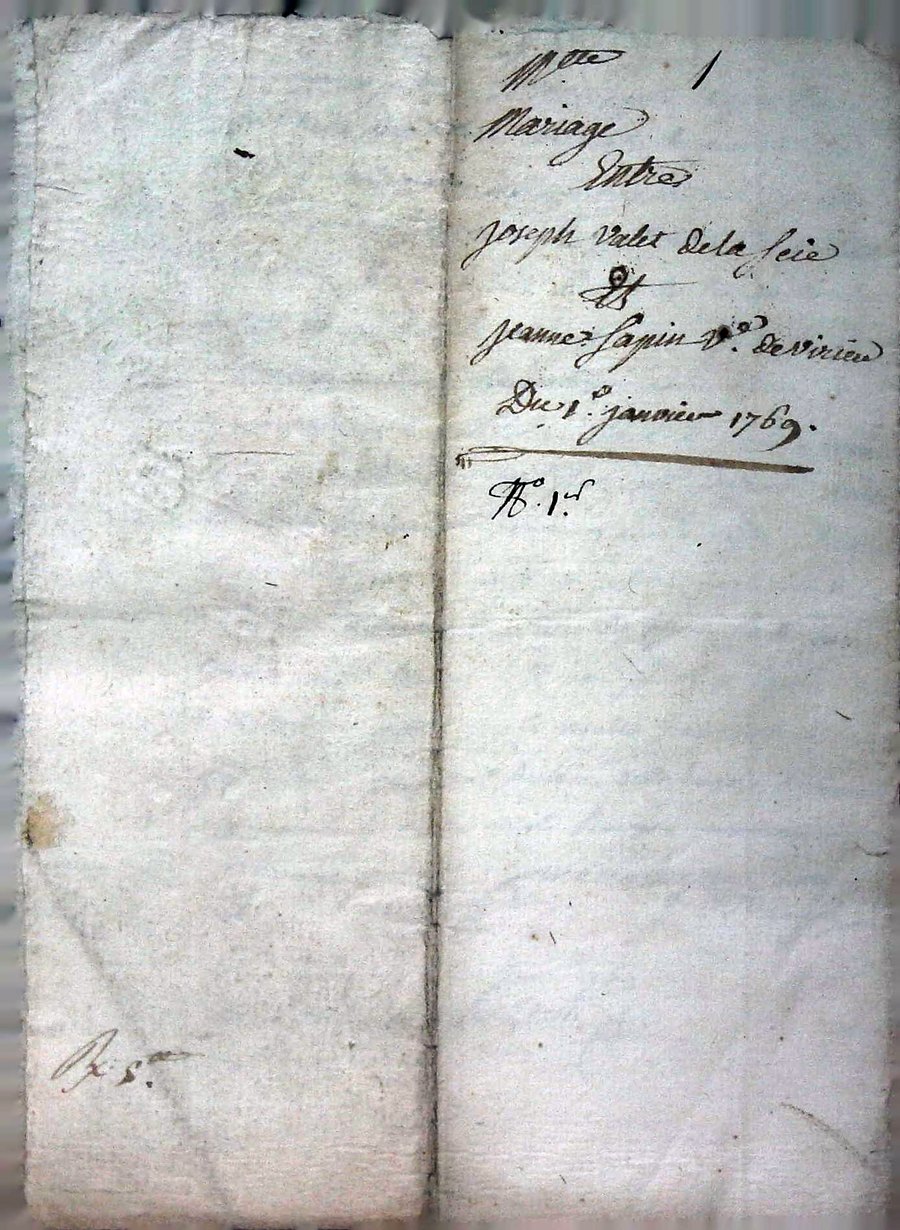 M.tte 1
Mariage
Entre
joseph valet de la feie
Et
jeanne Sapin v.e de virieu
Du 1.er janvier 1769.
N.o 1.er